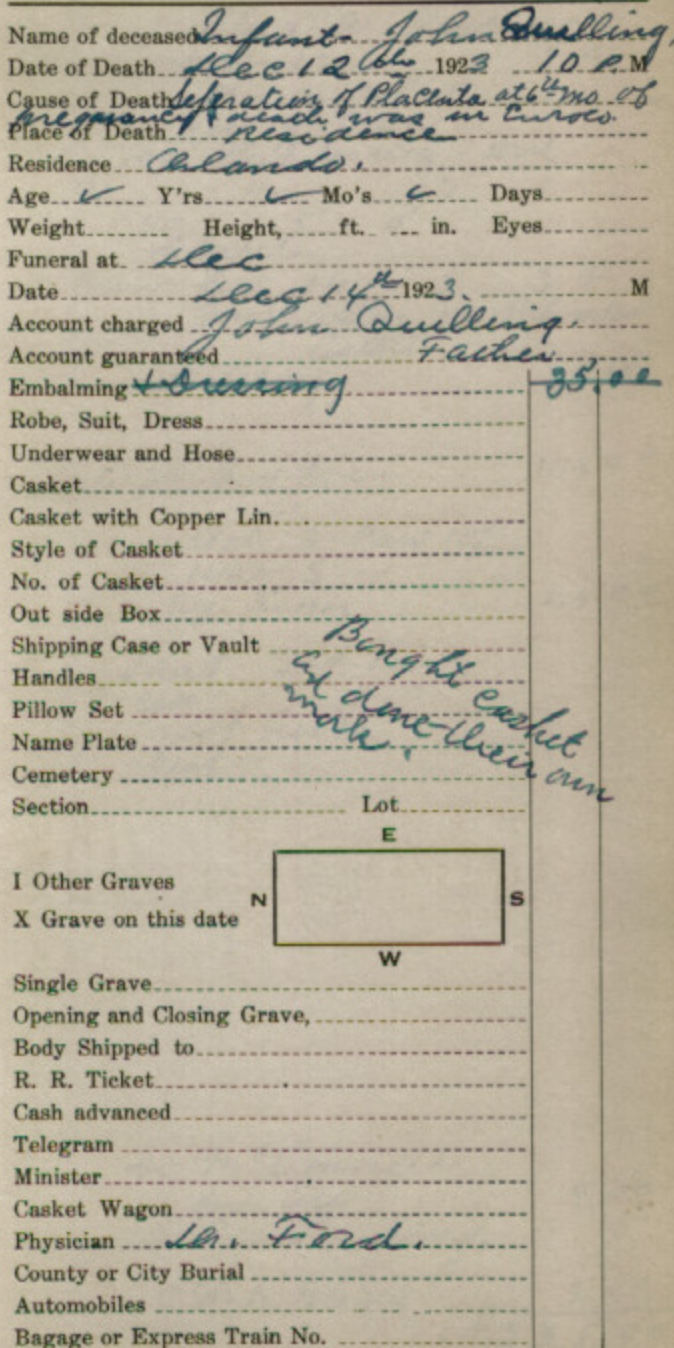 Name of deceased Infant John Quelling.
Date of Death Dec 12th 1923 10 P.M
Cause of Death Seperation of Placenta at 6th mo of
pregnancy & death was in Eutoro.
Place of Death Residence
Residence Orlando.
Age ✓ Y'rs ✓ Mo's ✓ Days
Weight Height, ft. in. Eyes
Funeral at Dec
Date Dec 14th 1923. M
Account charged John Quelling.
Account guaranteed Father
Embalming & Dressing 35.00
Robe, Suit, Dress
Underwear and Hose
Casket
Casket with Copper Lin.
Style of Casket
No. of Casket
Out side Box
Shipping Case or Vault
Handles
Pillow Set
Name Plate
Bought casket
and done their own
work.
Cemetery
Section Lot
E
I Other Graves
N S
X Grave on this date
W
Single Grave
Opening and Closing Grave,
Body Shipped to
R. R. Ticket
Cash advanced
Telegram
Minister
Casket Wagon
Physician Dr. Ford.
County or City Burial
Automobiles
Bagage or Express Train No.